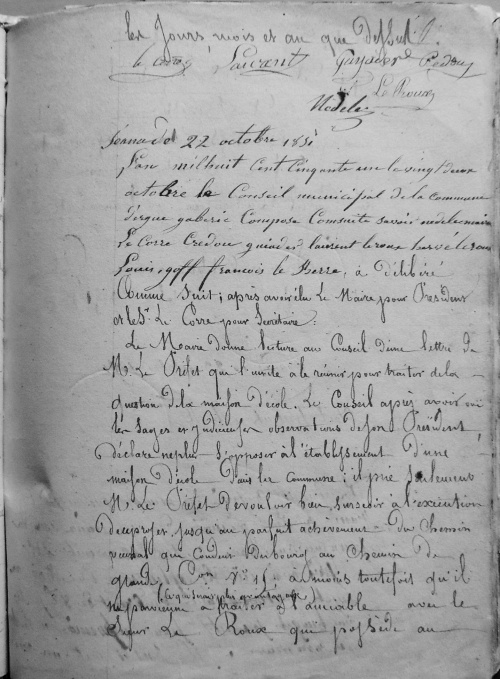 les jours, mois et an que dessus.
le corre Laurent Guyader Credou
Le Roux
Nédélec
22 octobre 1851
L'an mil huit cent cinquante un le vingt deux
octobre le Conseil municipal de la commune
d'ergue gaberic Composé Comsuite savoir nedelec maire
Le Corre Credou guiader laurent leroux hervé le roux
Louis, goff françois le Berre, a délibéré
Comme suit; après avoir élu Le Maire pour President
et le Sr. Le Corre pour Secrétaire.
Le Maire donne lecture au Conseil d'une lettre de
M. Le Préfet qui l'invite à le réunir pour traiter de la
question de la maison d'école. Le Conseil après avoir ouï
les sages et judicieuses observations de son Président
déclare ne plus s'opposer à l'établissement d'une
maison d'école dans la Commune; il prie seulement
M. Le Préfet de vouloir bien surseoir à l'exécution
de ce projet jusqu'au parfait achèvement du chemin
vicinal qui conduit du bourg au chemin de
grande Con n° 15 à moins toutefois qu'il
ne parvienne à traiter à l'amiable avec le
Sieur Le Roux qui possède au